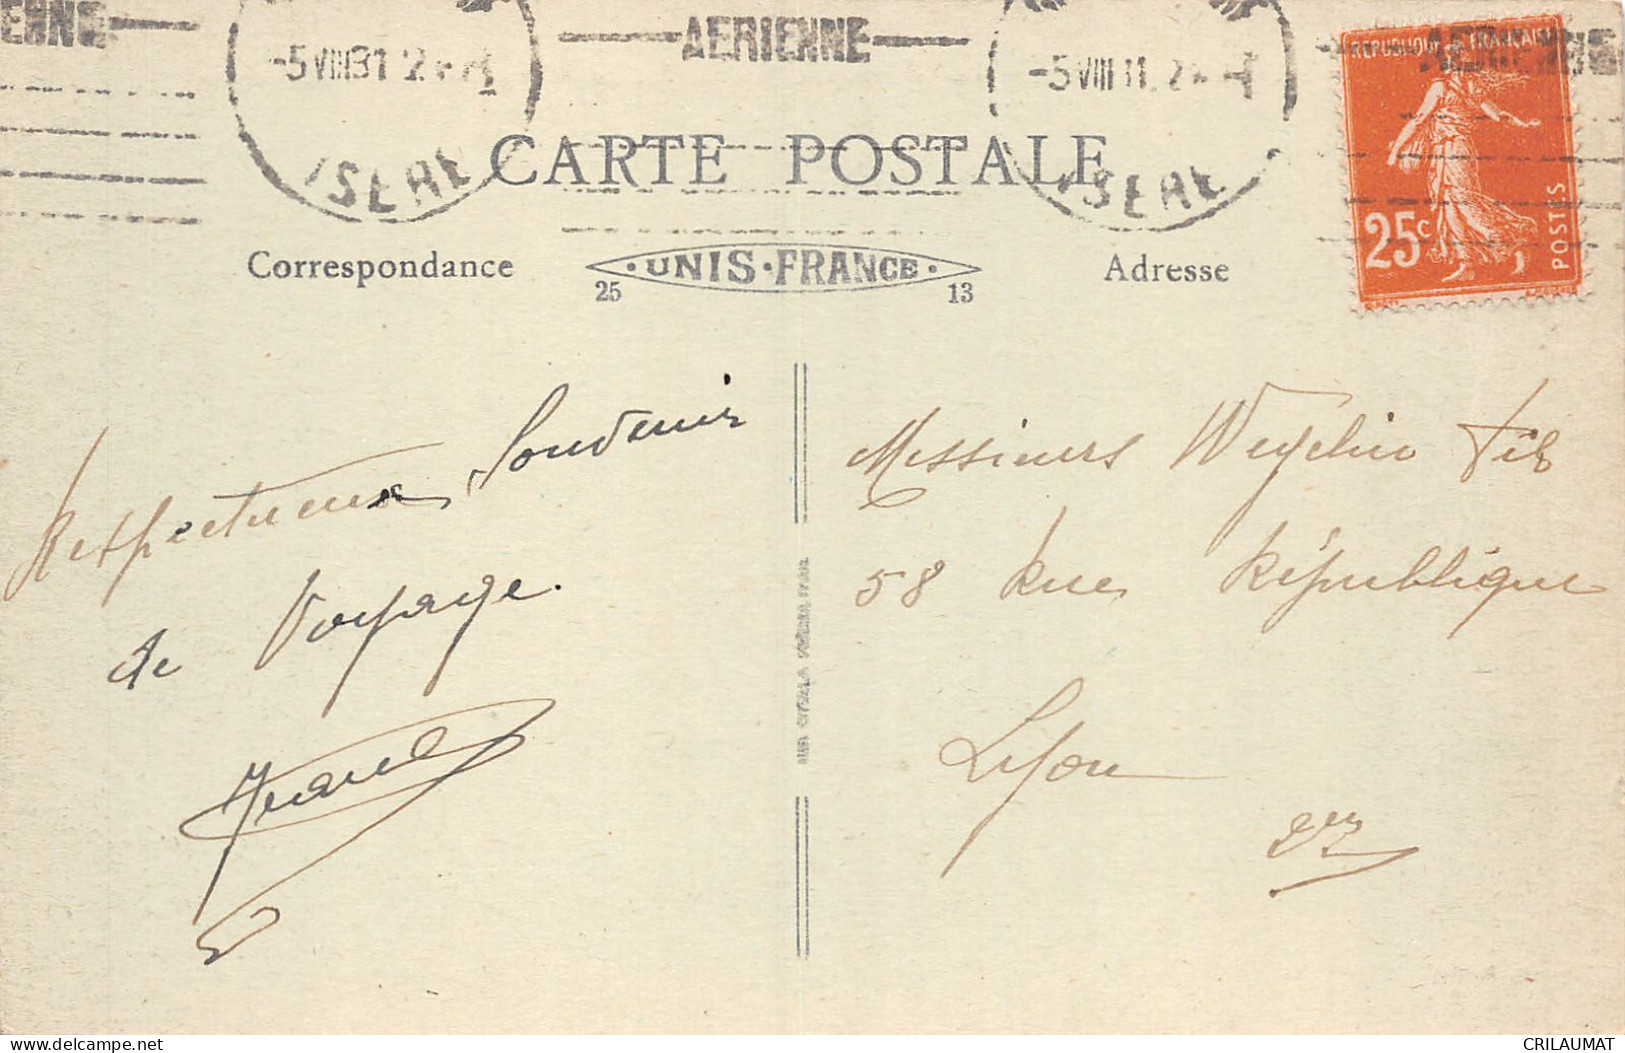 ENNE AERIENNE AERIENNE
-5 VIII 31 -5 VIII 31
REPUBLIQUE FRANÇAISE
25c POSTES
ISERE ISERE
CARTE POSTALE
Correspondance UNIS-FRANCE Adresse
25 13
Respectueux Souvenir
de Voyage.
Messieurs Weyelin fils
58 Rue République
Lyon
delcampe.net
CRILAUMAT